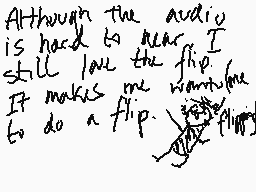 Although the audio
is hard to hear, I
still love the flip.
It makes me want
to do a flip.
(me
flipping